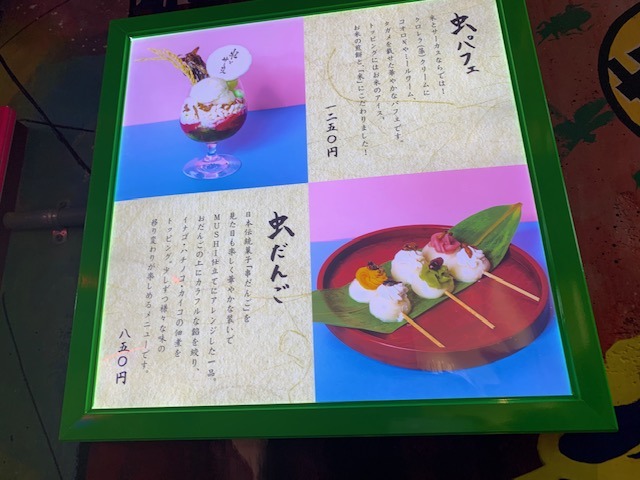 虫パフェ
米とサーカスならでは！
クロレラ（藻）クリームに
コオロギやミールワーム、
タガメを載せた華やかなパフェです。
トッピングにはお米のアイス、
お米の煎餅と、「米」にこだわりました！
一二五〇円
虫だんご
日本伝統菓子「串だんご」を
見た目も楽しく華やかな装いで
MUSHI仕立てにアレンジした一品。
おだんごの上にカラフルな餡を絞り、
イナゴ・ハチノコ・カイコの佃煮を
トッピング。少しずつ様々な味の
移り変わりが楽しめるメニューです。
八五〇円